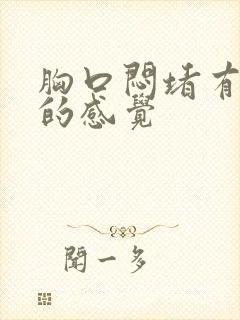 胸口悶堵有
的感覺
聞一多